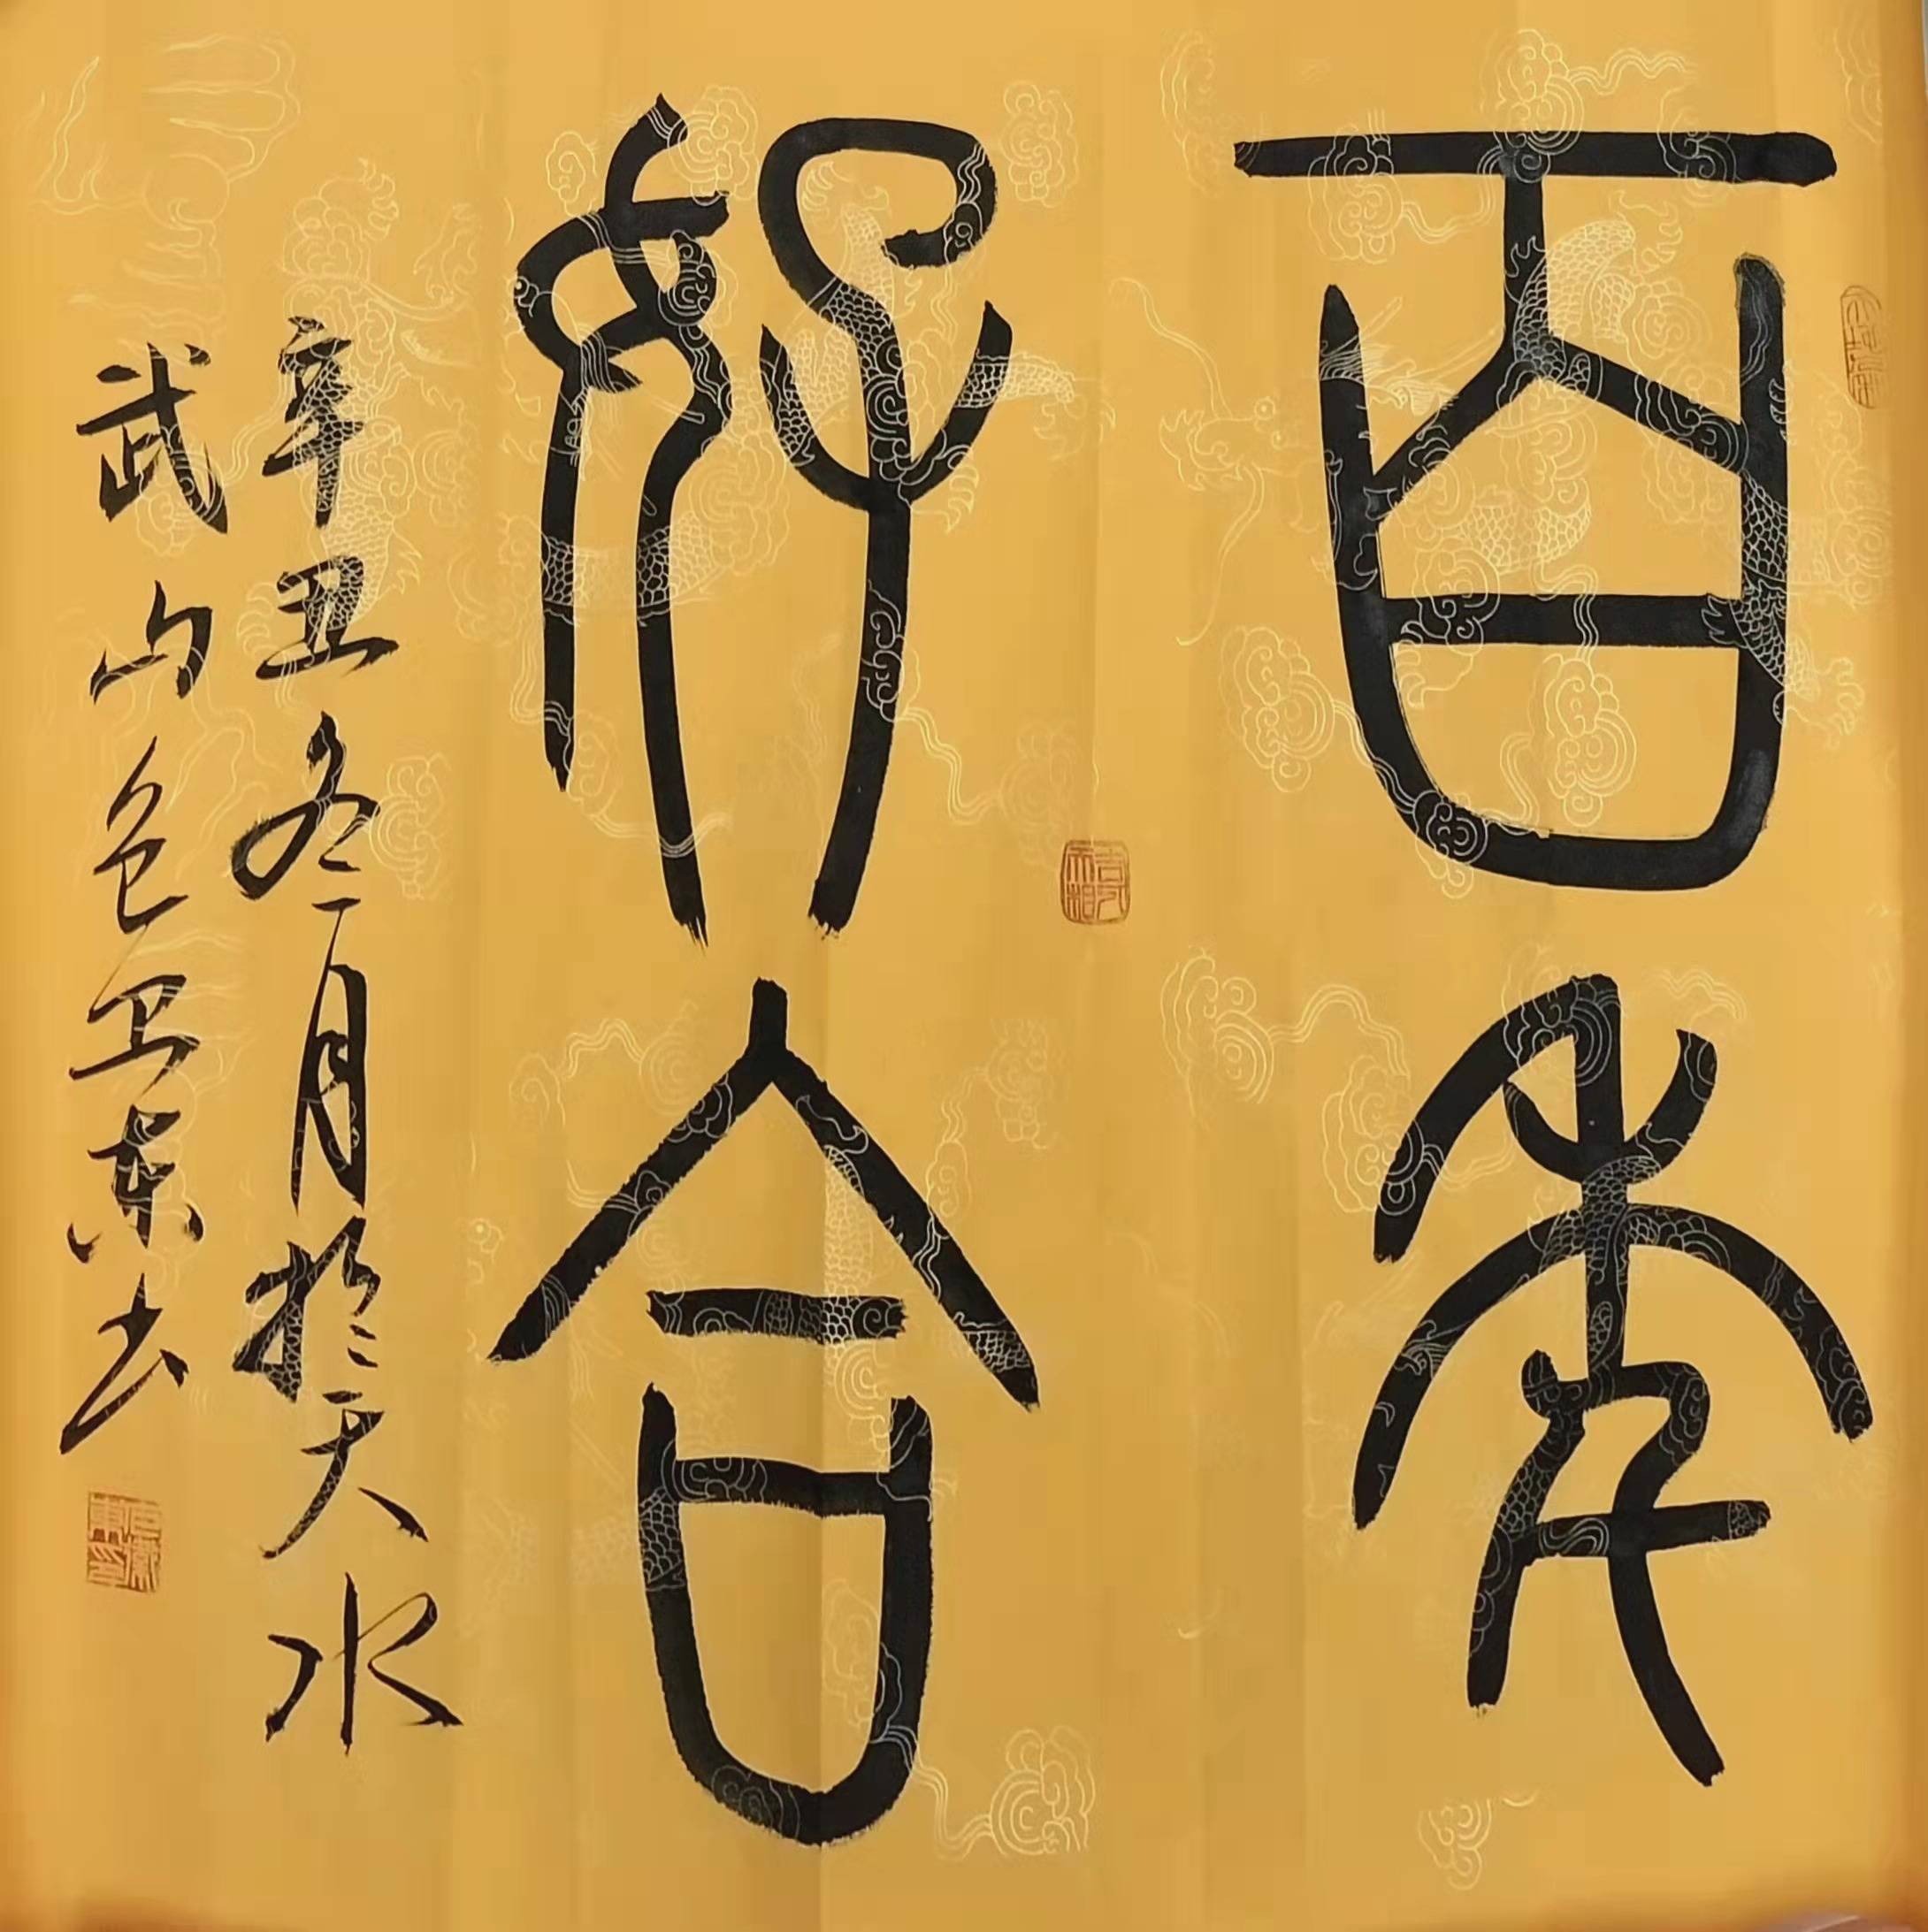 百年
好合
辛丑冬月於天水
武山包卫东书